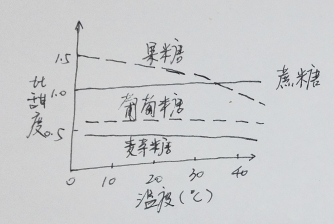 果糖
1.5
蔗糖
1.0
比甜度
葡萄糖
0.5
麦芽糖
0 10 20 30 40
温度(℃)